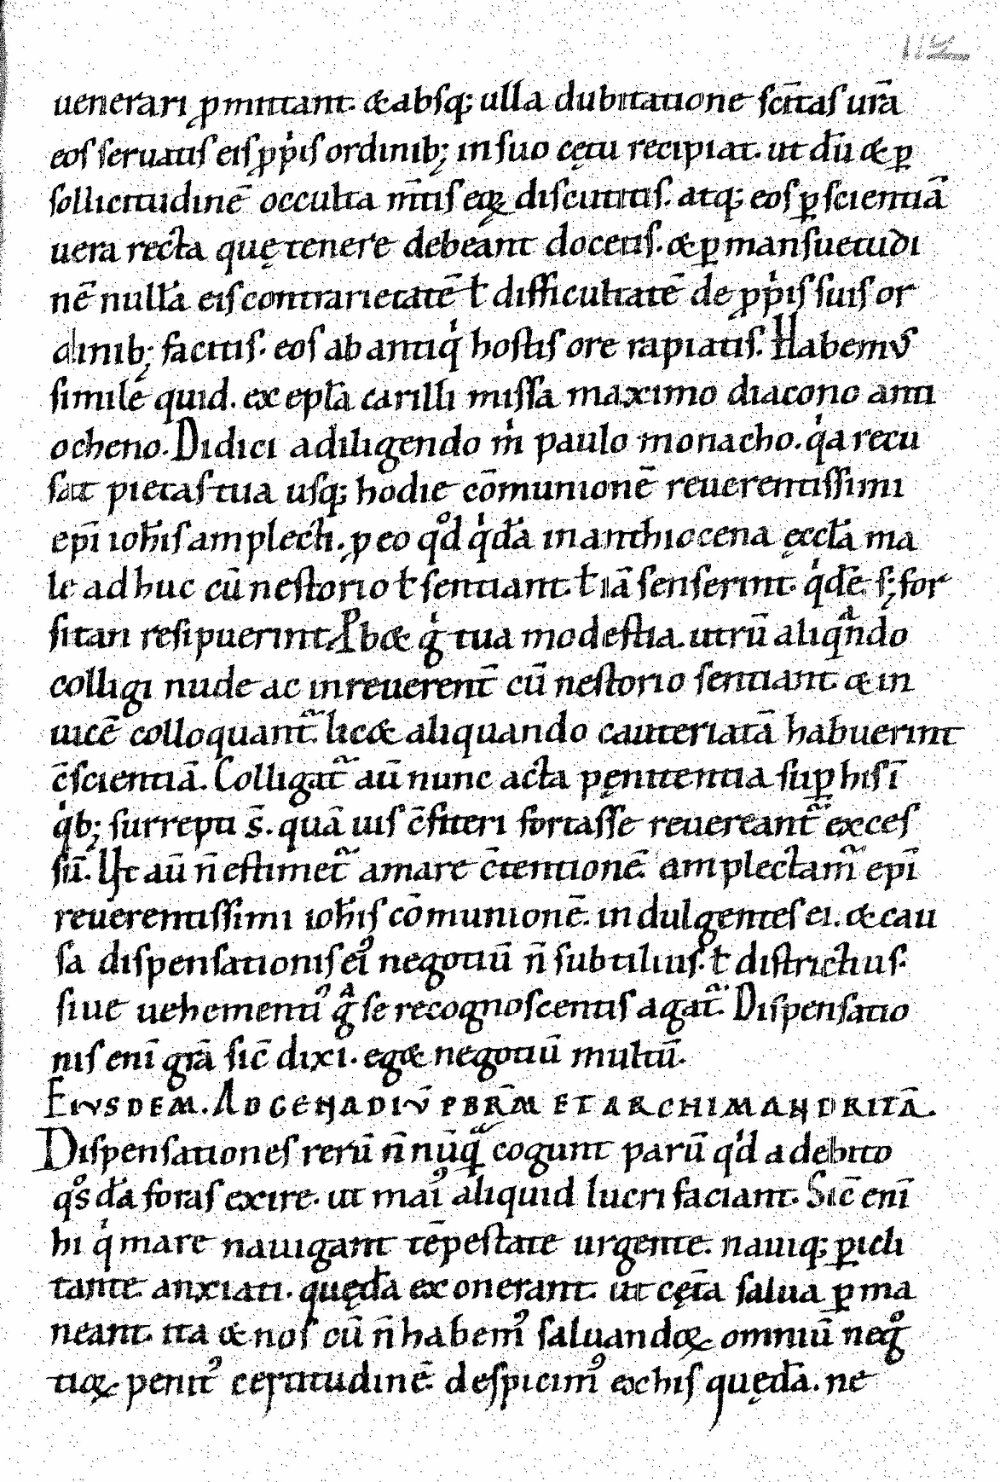 112
uenerari ꝓmittant. & absq; ulla dubitatione sc̄itas ur̄a
eos seruatis eis ꝓpͥis ordinib; in suo cętu recipiat. ut dū & ꝑ
sollicitudinē occulta m̄tis eoꝝ discutitis. atq; eos ꝑ scientiā
uera recta quę tenere debeant docetis. & ꝑ mansuetudi
nē null̄a eis contrarietatē ł difficultatē de ꝓpͥis suis or
dinib; facitis. eos ab antiqͥ hostis ore rapiatis. Habemꝰ
simile quid. ex epl̄a carilli missa maximo diacono anti
ocheno. Didici a diligendo mͥ paulo monacho. qͥa recu
sat pietas tua usq; hodie cōmunionē reuerentissimi
epī ioh̄is amplecti. ꝑ eo qͦd qͥd̄a in anthiocena ęccl̄a ma
le adhuc cū nestorio ł sentiant. ł iā senserint. qͥdē s; for
sitan resipuerint. Pb& gͥ tua modestia. utrū aliqᷓndo
colligi nude ac inreuerent̄ cū nestorio sentiant. & in
uicē colloquant᷑. lic& aliquando cauteriatā habuerint
c̄scientiā. Colligat᷑ aū nunc acta pęnitentia suꝑ his ī
qͥb; surrepti s̄. quā uis c̄fiteri fortasse reuereant᷑ exces
sū. Ut aū n̄ estimet᷑ amare c̄tentionē. amplectam᷑ epī
reuerentissimi ioh̄is cōmunionē. indulgentes ei. & cau
sa dispensationis eiꝰ negotiū n̄ subtilius. ł districtius.
siue uehementiꝰ gᷓ se recognoscentis agat᷑. Dispensatio
nis enī gr̄a sic̄ dixi. eg& negotiū multū.
EIUSDEM. AD GENADIŪ PBR̄M ET ARCHIMANDRITĀ.
Dispensationes rerū n̄ nūqᷓ cogunt parū qͥd a debito
qͦsd̄a foras exire. ut maiꝰ aliquid lucri faciant. Sic̄ enī
hi qͥ mare nauigant tēpestate urgente. nauiq; ꝑicli
tante. anxiati. quęd̄a exonerant. ut cęt̄a salua ꝑma
neant. ita & nos cū n̄ habemꝰ saluandoꝝ omniū negͦ
tioꝝ penitꝰ certitudinē. despicimꝰ ex his quęd̄a. ne